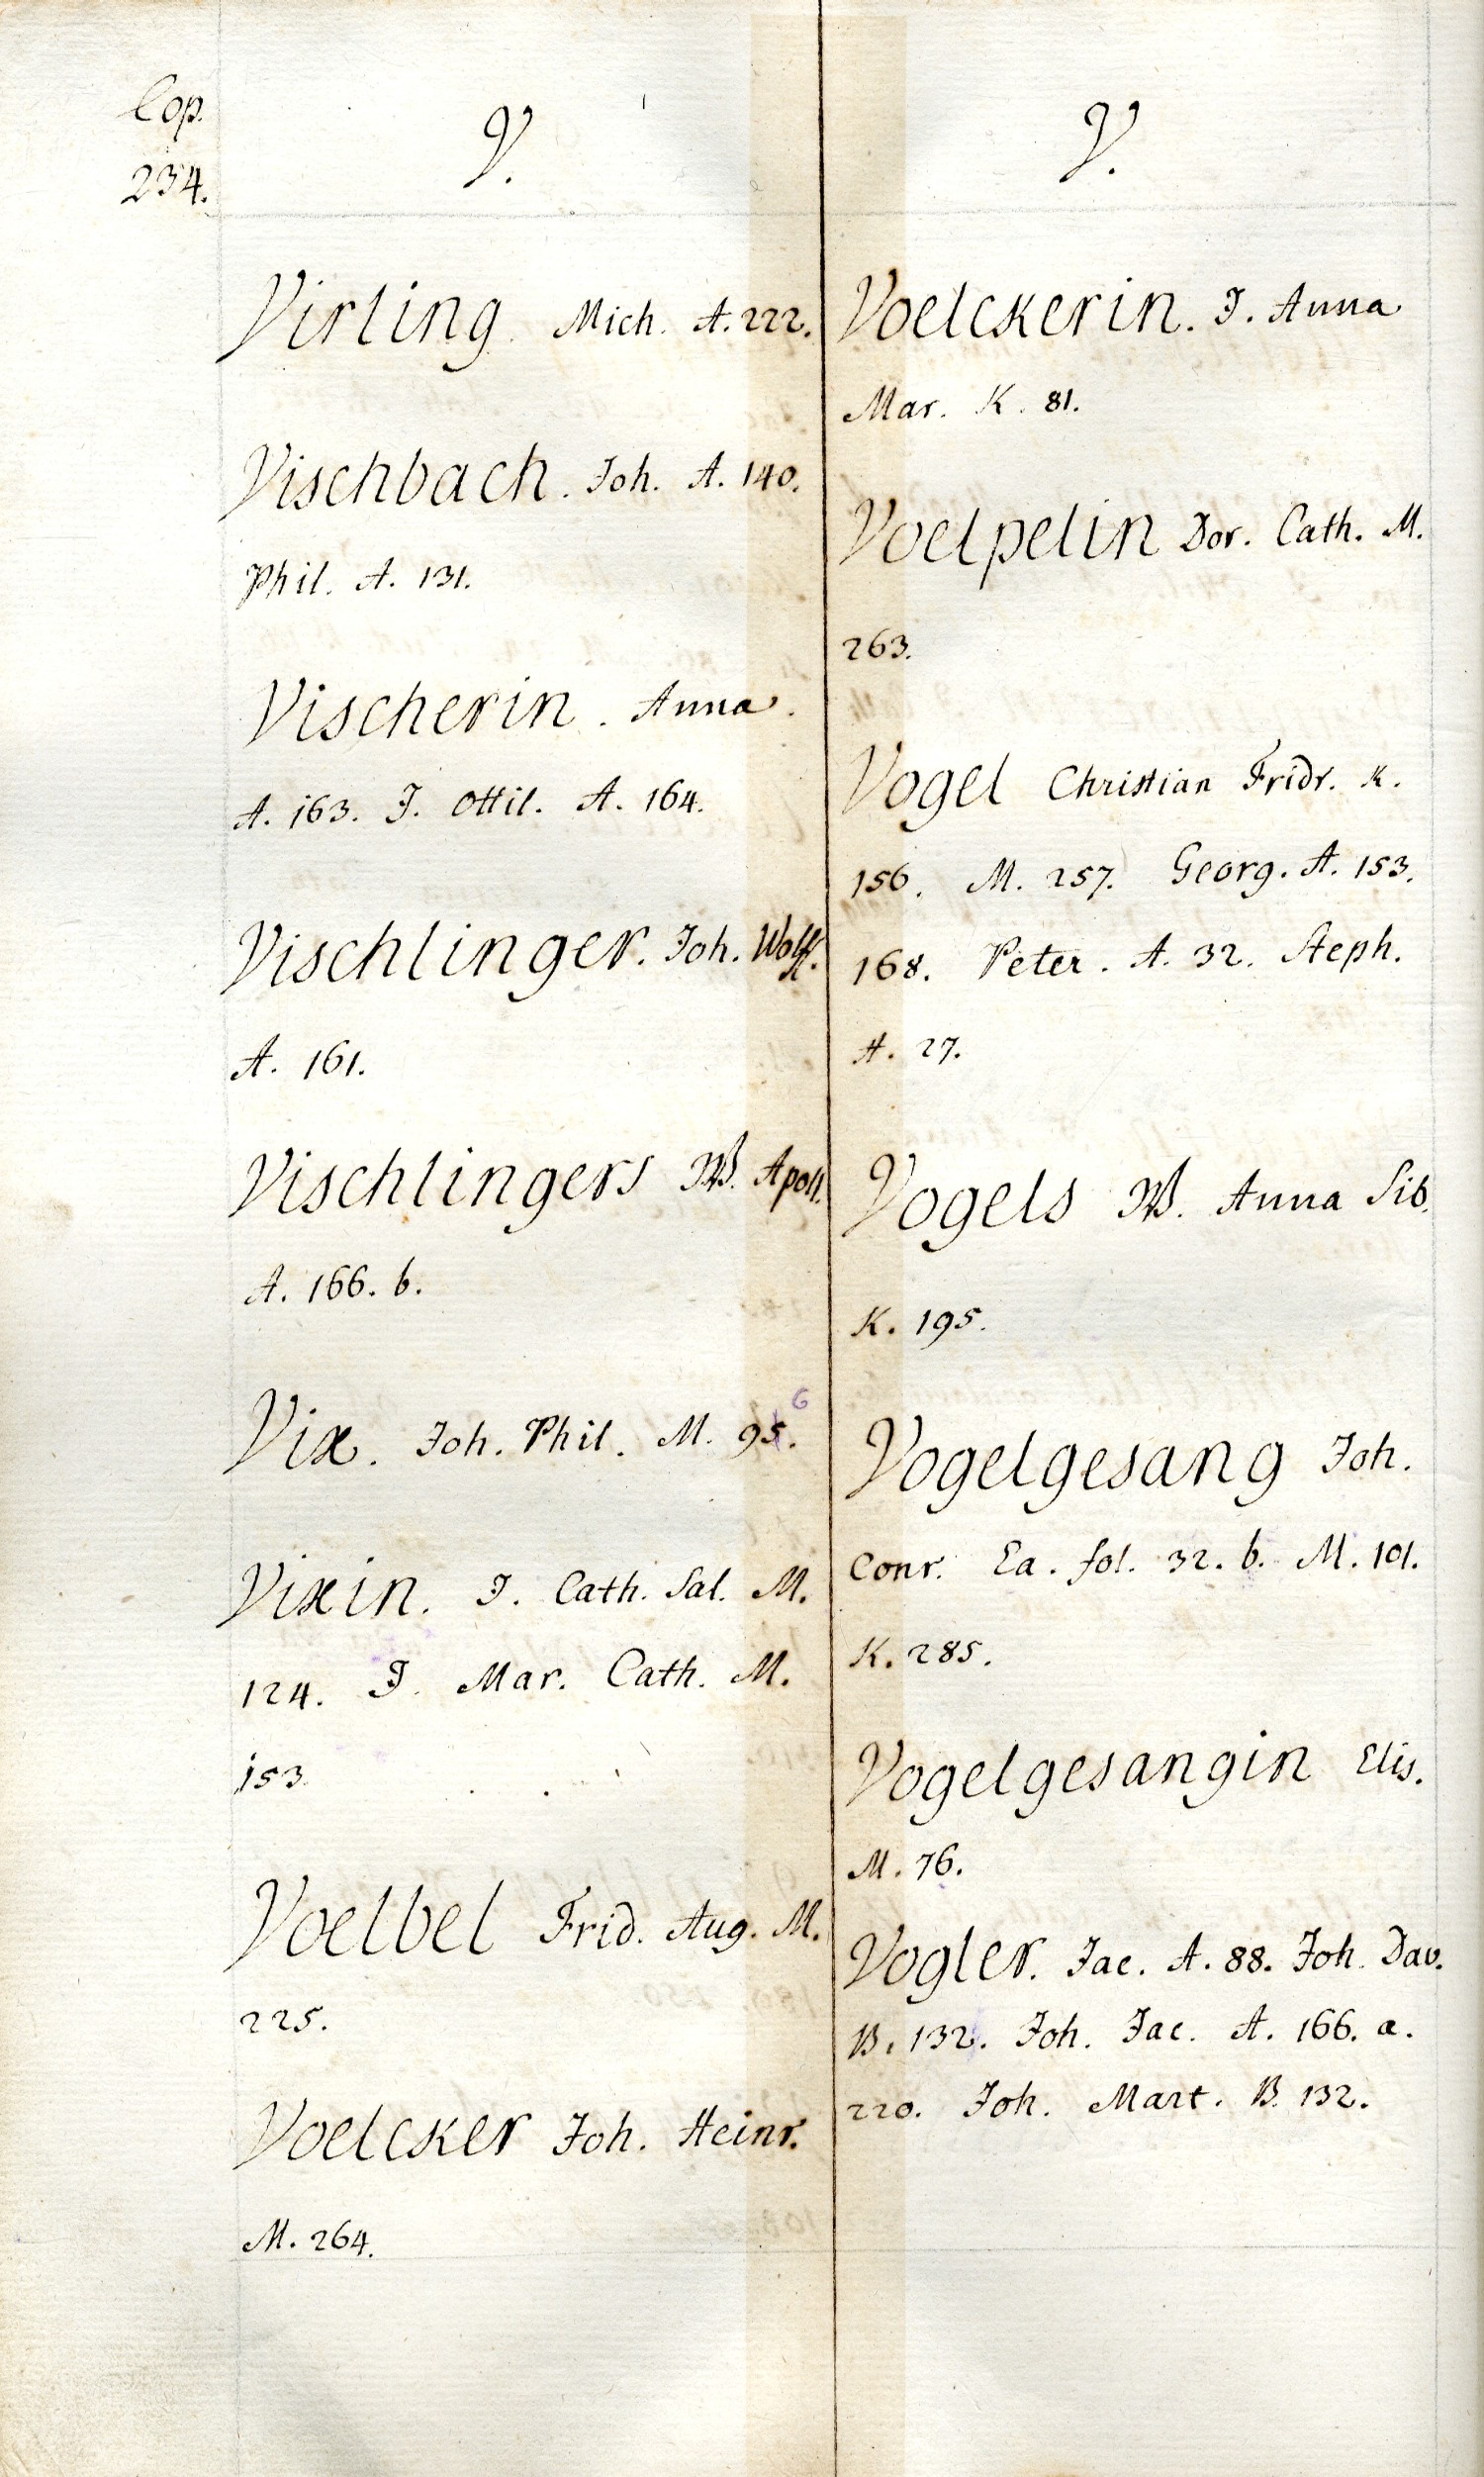 Cop.
234.
V.
Virling. Mich. A. 222.
Vischbach. Joh. A. 140.
Phil. A. 131.
Vischerin. Anna.
A. 163. J. Ottil. A. 164.
Vischlinger. Joh. Wolff.
A. 161.
Vischlingers W. Apoll.
A. 166. b.
Vix. Joh. Phil. M. 95. 6
Vixin. J. Cath. Sal. M.
124. J. Mar. Cath. M.
153.
Voelbel Frid. Aug. M.
225.
Voelcker Joh. Heinr.
M. 264.
V.
Voelckerin. J. Anna
Mar. K. 81.
Voelpelin Dor. Cath. M.
263.
Vogel Christian Fridr. K.
156. M. 257. Georg. A. 153.
168. Peter. A. 32. Steph.
A. 27.
Vogels W. Anna Sib.
K. 195.
Vogelgesang Joh.
Conr. Ea. fol. 32. b. M. 101.
K. 285.
Vogelgesangin Elis.
M. 76.
Vogler. Jac. A. 88. Joh. Dav.
B. 132. Joh. Jac. A. 166. a.
220. Joh. Mart. B. 132.